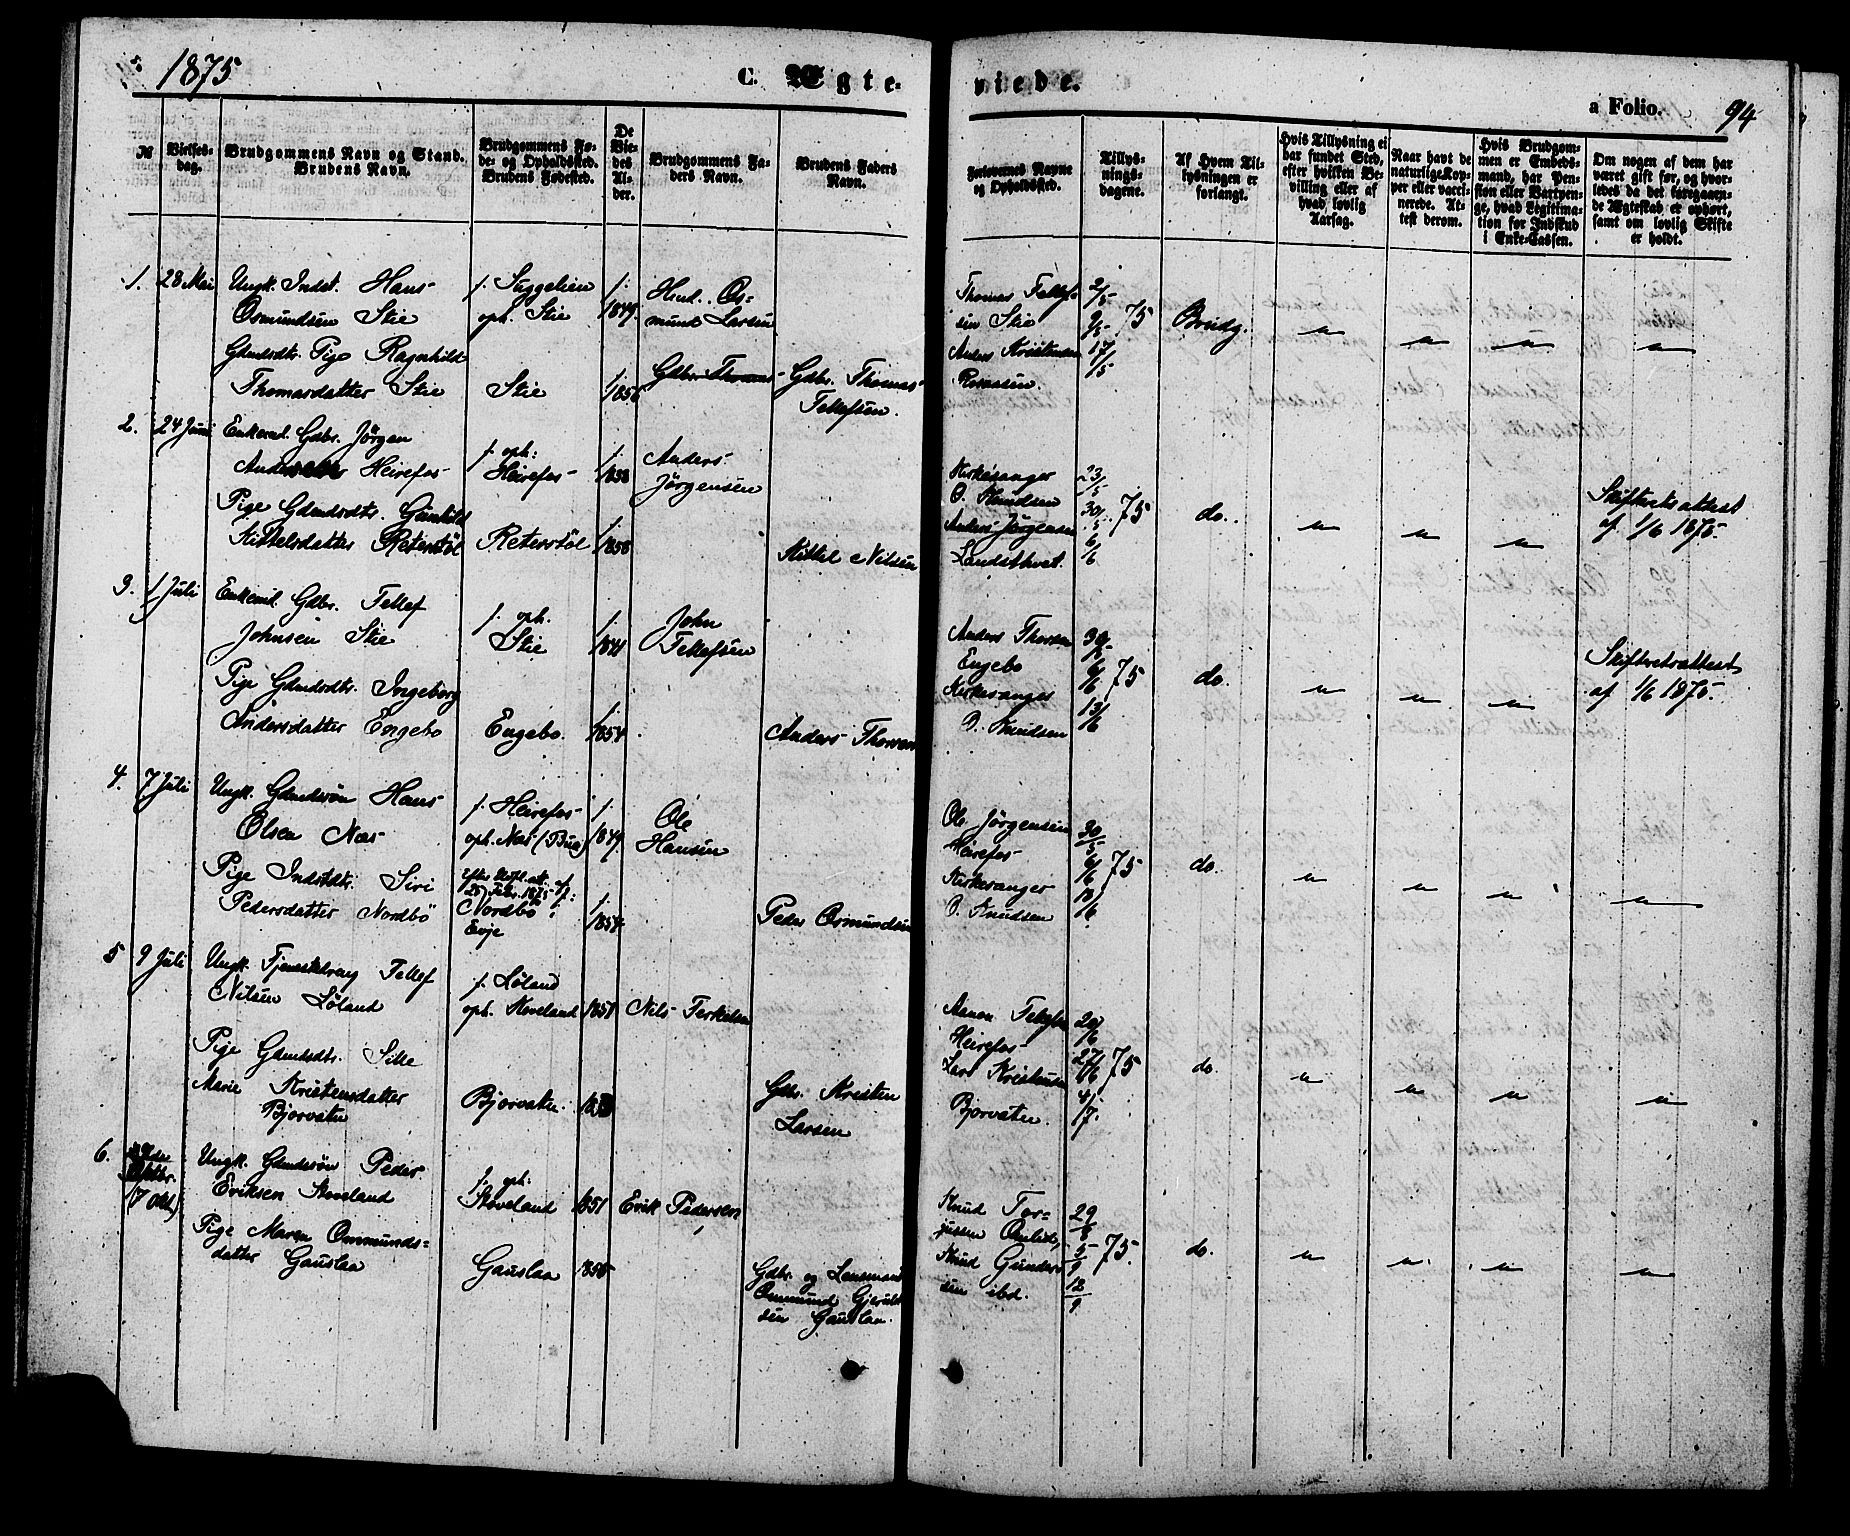 1875
C. Ægte-
viede.
a Folio. 94
№
Vielses-
dag.
Brudgommens Navn og Stand.
Brudens Navn.
Brudgommens Fø-
de- og Opholdssted.
Brudens Fødested.
De
Vie-
des
Al-
der.
Brudgommens Fa-
ders Navn.
Brudens Faders
Navn.
Forlovernes Navne
og Opholdssted.
Tillys-
nings-
dagene.
Af Hvem Til-
lysningen er
forlangt.
Hvis Tillysning ei
har fundet Sted,
efter hvilken Be-
villing eller af
hvad lovlig
Aarsag.
Naar havt de
naturlige Kop-
per eller vacci-
nerede. At-
test derom.
Hvis Brudgom-
men er Embeds-
mand, har Pen-
sion eller Vartpen-
ge, hvad Legitima-
tion for Indskud
i Enke-Cassen.
Om nogen af dem har
været gift før, og hvor-
ledes da det foregaaen-
de Ægteskab er ophørt,
samt om lovlig Skifte
er holdt.
1. 28 Mai
Ungk. Indst. Hans
Osmundsen Stie
Gdmdsdtr. Pige Ragnhild
Thomasdatter Stie
f.
oph. Stie
Stie
1849.
Hmd. Os-
mund Larsen
Gdbr. Thomas
Gdbr. Thomas
Tellefsen.
Thomas Tellef-
sen Stie
Anders Kristensen
2/5
9/5 75
17/5
Brudg.
2. 24 Juni
Enkemd. Gdbr. Jörgen
Heirefos
Pige Gdmdsdtr. Gunhild
Kittelsdatter Reterstöl
f. oph:
Heirefos
Reterstöl
Anders
Jörgensen
Kittel Nilsen
Kirkesanger
O. Knudsen
Anders Jörgensen
Landsthvet.
23/5
30/5 75
6/6
do.
Skifteretsattest
af 1/6 1875.
3. 1 Juli
Enkemd. Gdbr. Tellef
Johnsen Stie
Pige Gdmdsdtr. Ingeborg
Andersdatter Engebo
f. oph.
Stie
Engebo.
1854
John
Tellefsen
Anders Thorsen
Anders Thorsen
Engebo
Kirkesanger
O. Knudsen
30/5
6/6 75
13/6
do.
Skifteretsattest
af 1/6 1875.
4. 7 Juli
Ungk. Gdmdssön Hans
Olsen Næs
Pige Indstdtr. Siri
Pedersdatter Nordbö
f. Heirefos
oph. Næs
25 Febr. 1875
Nordbö
Evje
1849.
1854
Ole
Hansen
Peder Osmundsen
Ole Jörgensen
Heirefos
Kirkesanger
O. Knudsen
30/5
6/6 75
13/6
do.
5 9 Juli
Ungk. Tjenestedreng Tellef
Nilsen Löland
Pige Gdmdsdtr. Sille
Marie Kristensdatter
Bjorvatn
f. Löland
oph. Hoveland
Bjorvatn.
1851
Nils Terkelsen
Gdbr. Kristen
Larsen
Aanon Tellefsen
Heirefos
Lars Kristensen
Bjorvatn.
20/6
27/6 75
4/7.
do.
6.
(7 Okt)
Ungk. Gdmdssön Peder
Eriksen Hoveland
Pige Maren Ommunds-
datter Gauslaa
f. oph:
Hoveland
Gauslaa
1851
1855
Erik Pedersen
Gdbr. og Lensmand
Ommund Gjeruld-
sen Gauslaa.
Knud Tor-
jussen Omlid,
Knud Gunder-
sen ibd.
29/8
5/9 75.
12/9
do.